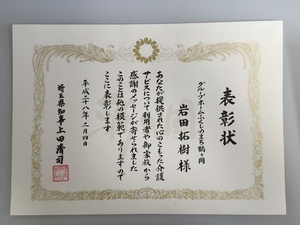 表彰状
グループホームふじみのまち鶴ヶ岡
岩田拓樹様
あなたが提供された心のこもった介護
サービスについて利用者や御家族から
感謝のメッセージが寄せられました
このことは他の模範でありますので
ここに表彰します
平成二十八年二月四日
埼玉県知事上田清司